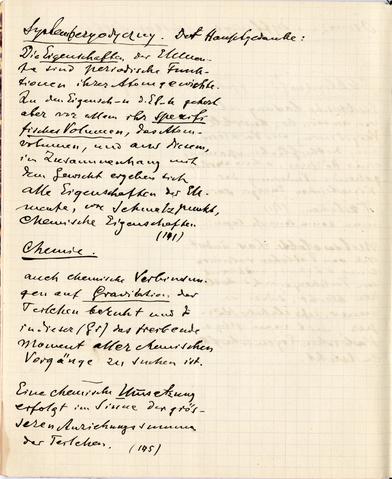 System peryodyczny. Der Hauptgedanke:
Die Eigenschaften der Elemen-
te sind periodische Funk-
tionen ihrer Atomgewichte.
Zu den Eigensch-n d. El-te gehört
aber vor allem ihr spezifi
fisches Volumen, das Atom-
volumen, und aus diesem,
im Zusammenhang mit
dem Gewicht ergeben sich
alle Eigenschaften der Ele-
mente, wie Schmelzpunkt,
chemische Eigenschaften
(141)
Chemie.
auch chemische Verbindun-
gen auf Gravitation der
Teilchen beruht und
in dieser das treibende
Moment aller chemischen
Vorgänge zu suchen ist.
Eine chemische Umsetzung
erfolgt im Sinne der grös-
seren Anziehungssumme
der Teilchen. (145)